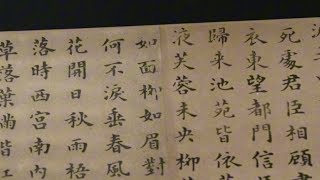 死處君臣相顧
衣東望都門信
歸来池苑皆依
液芙蓉未央柳
如面柳如眉對
何不淚垂春風
花開日秋雨梧
落時西宮南內
草落葉滿階